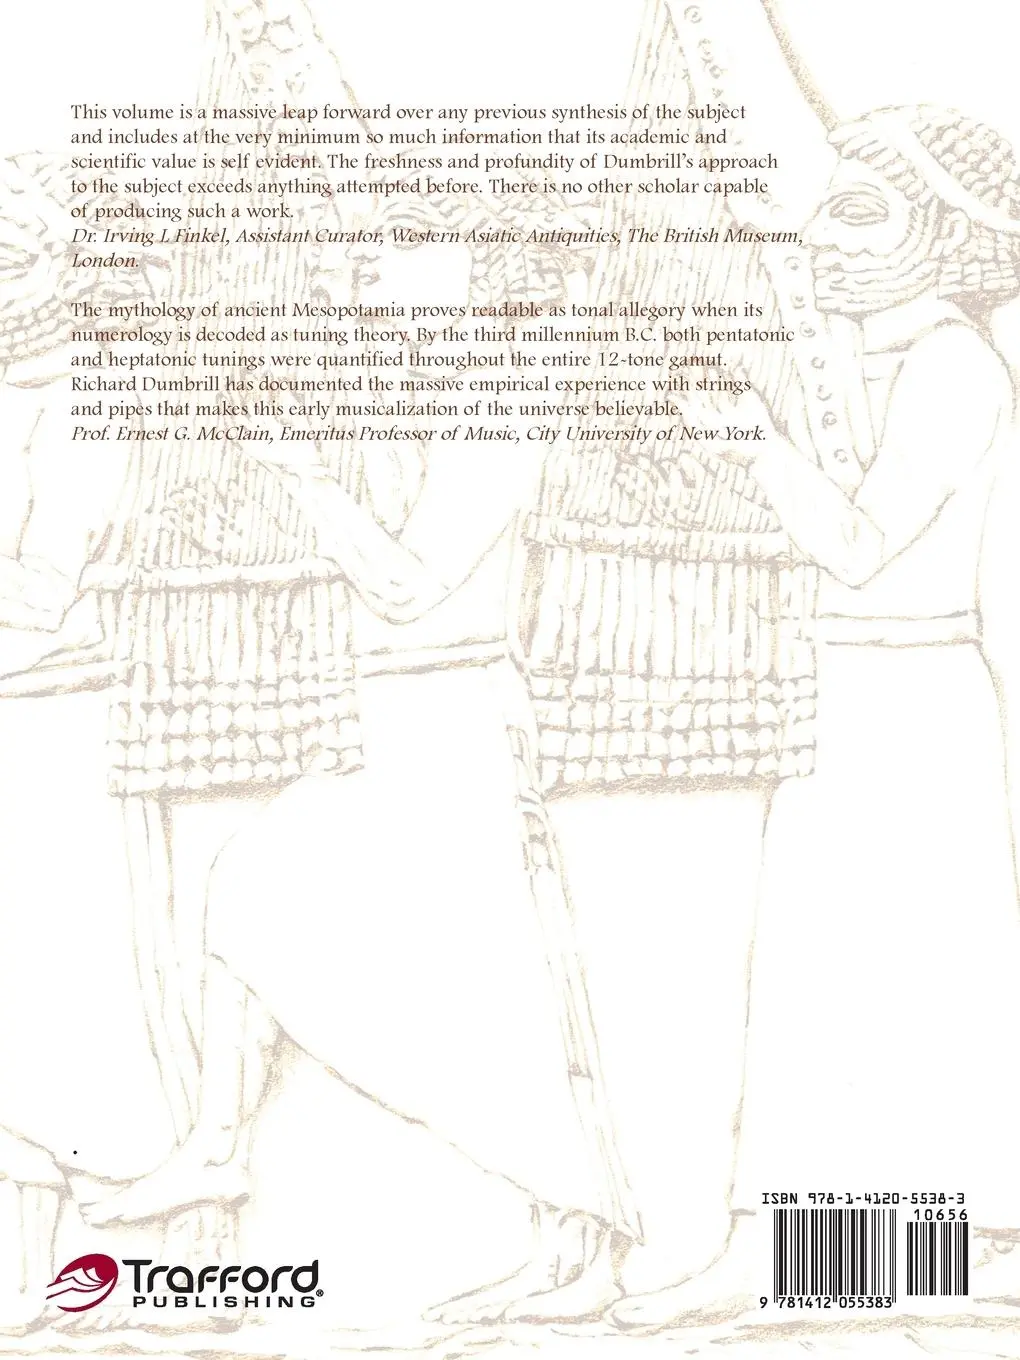 This volume is a massive leap forward over any previous synthesis of the subject
and includes at the very minimum so much information that its academic and
scientific value is self evident. The freshness and profundity of Dumbrill's approach
to the subject exceeds anything attempted before. There is no other scholar capable
of producing such a work.
Dr. Irving L Finkel, Assistant Curator, Western Asiatic Antiquities, The British Museum,
London.
The mythology of ancient Mesopotamia proves readable as tonal allegory when its
numerology is decoded as tuning theory. By the third millennium B.C. both pentatonic
and heptatonic tunings were quantified throughout the entire 12-tone gamut.
Richard Dumbrill has documented the massive empirical experience with strings
and pipes that makes this early musicalization of the universe believable.
Prof. Ernest G. McClain, Emeritus Professor of Music, City University of New York.
Trafford®
PUBLISHING
ISBN 978-1-4120-5538-3
10656
9 781412 055383